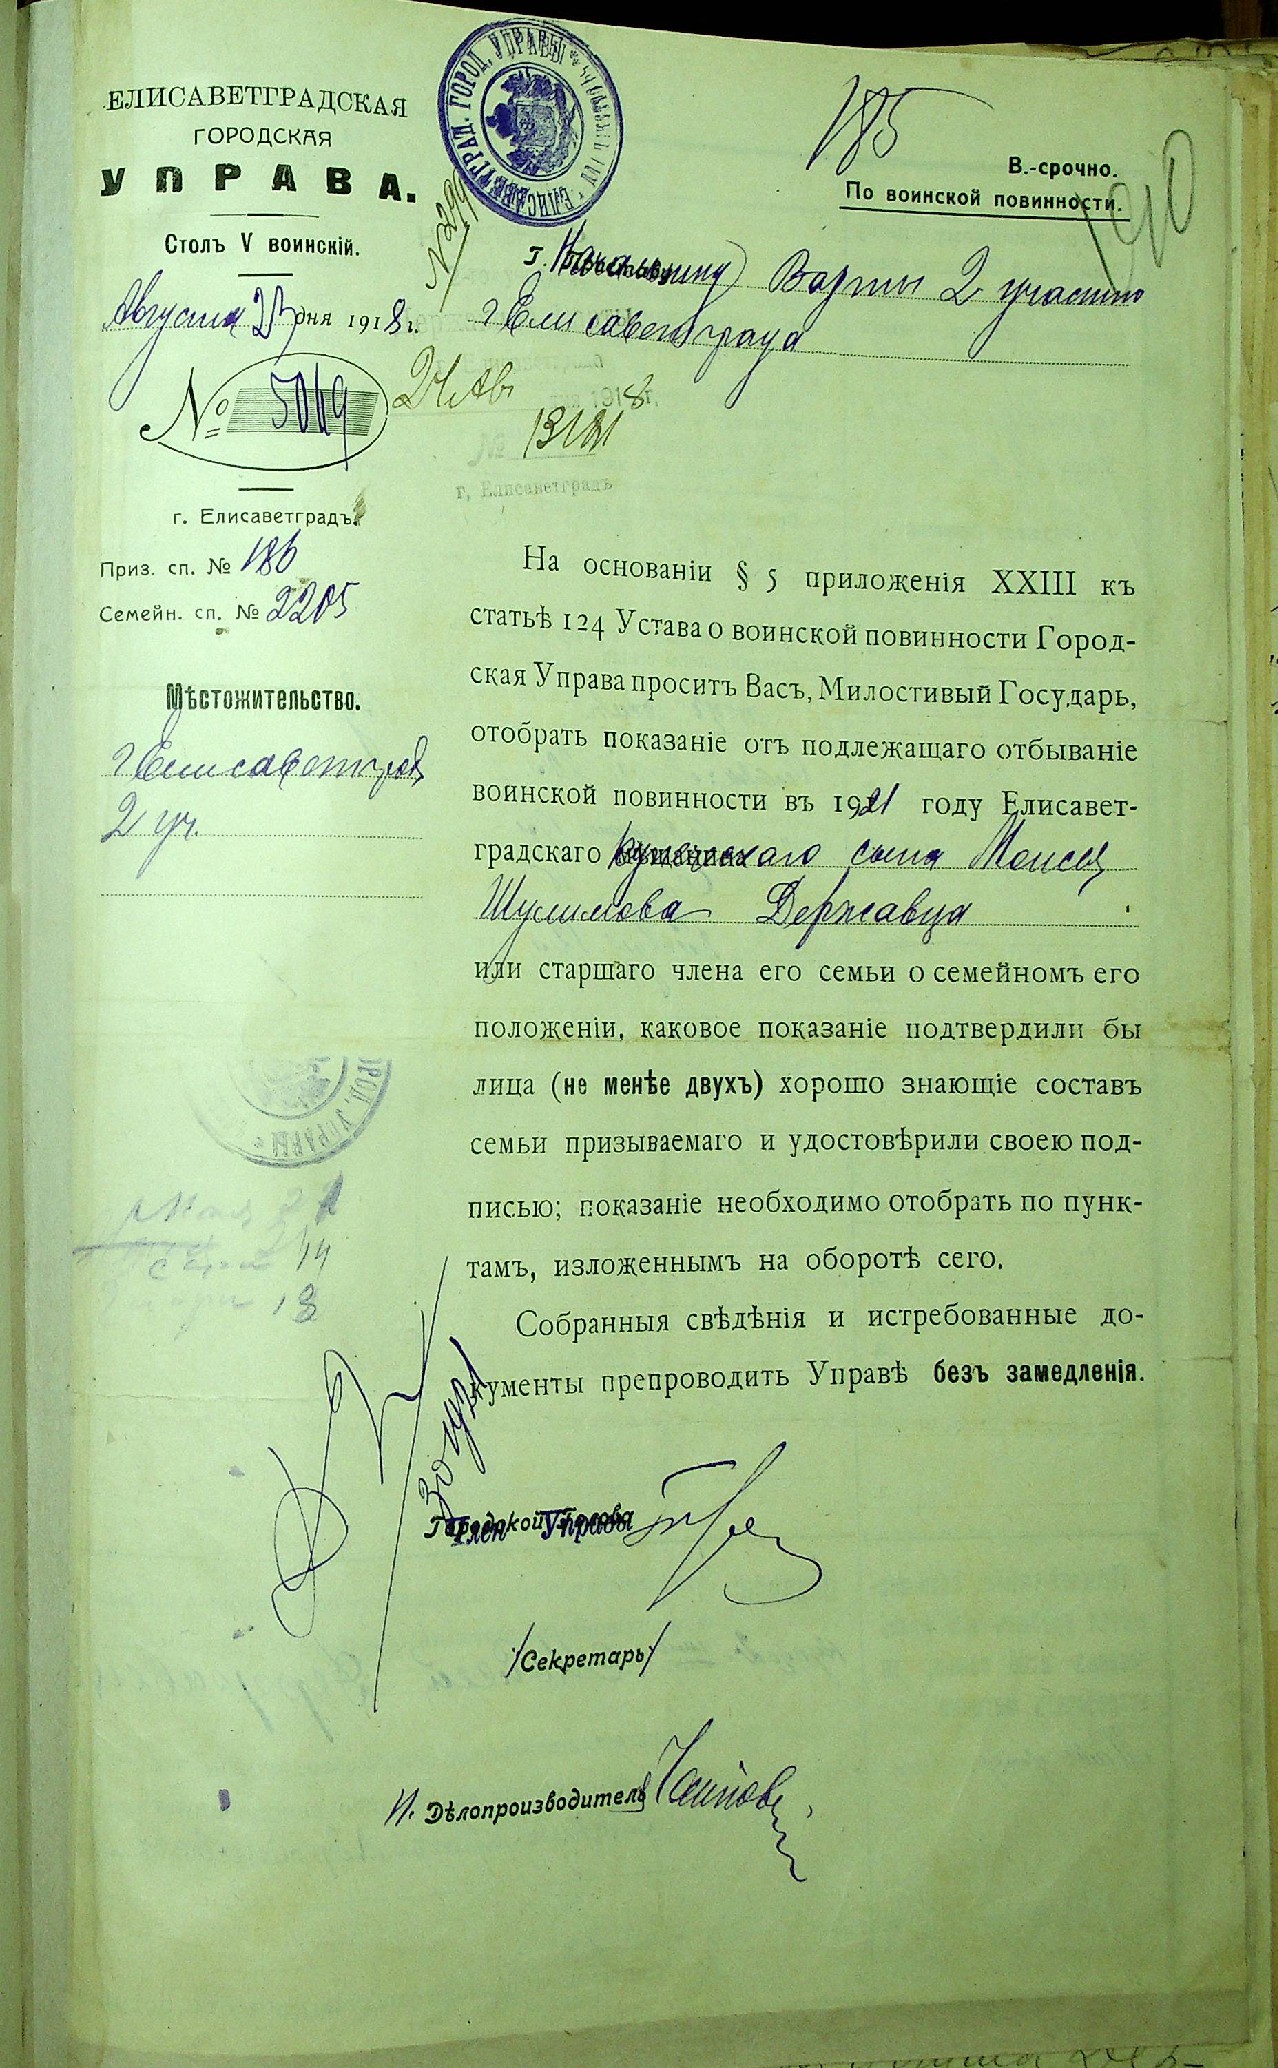 ЕЛИСАВЕТГРАДСКАЯ
ГОРОДСКАЯ
УПРАВА.
Столъ V воинскій.
Августа 23 дня 1918 г.
№ 5049
г. Елисаветградъ.
Приз. сп. № 186
Семейн. сп. № 2205
Мѣстожительство.
г Елисаветград
2 уч.
№ 299
185
190
В.-срочно.
По воинской повинности.
г. Начальнику Варты 2 участка
г Елисаветграда
24 Ав 1918 г.
г. Елисаветградъ
На основаніи § 5 приложенія XXIII къ
статьѣ 124 Устава о воинской повинности Город-
ская Управа проситъ Васъ, Милостивый Государь,
отобрать показаніе отъ подлежащаго отбываніе
воинской повинности въ 1921 году Елисавет-
градскаго купеческаго сына Моисея
Шулимова Державца
или старшаго члена его семьи о семейномъ его
положеніи, каковое показаніе подтвердили бы
лица (не менѣе двухъ) хорошо знающіе составъ
семьи призываемаго и удостовѣрили своею под-
писью; показаніе необходимо отобрать по пунк-
тамъ, изложеннымъ на оборотѣ сего.
Собранныя свѣдѣнія и истребованные до-
кументы препроводить Управѣ безъ замедленія.
Член Управы
/Секретарь/
И. Дѣлопроизводитель